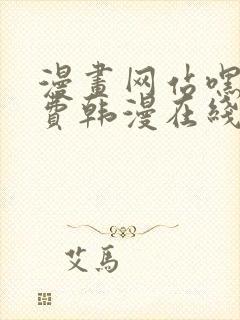 漫畫网佔嘿
費韩漫在綫
艾馬